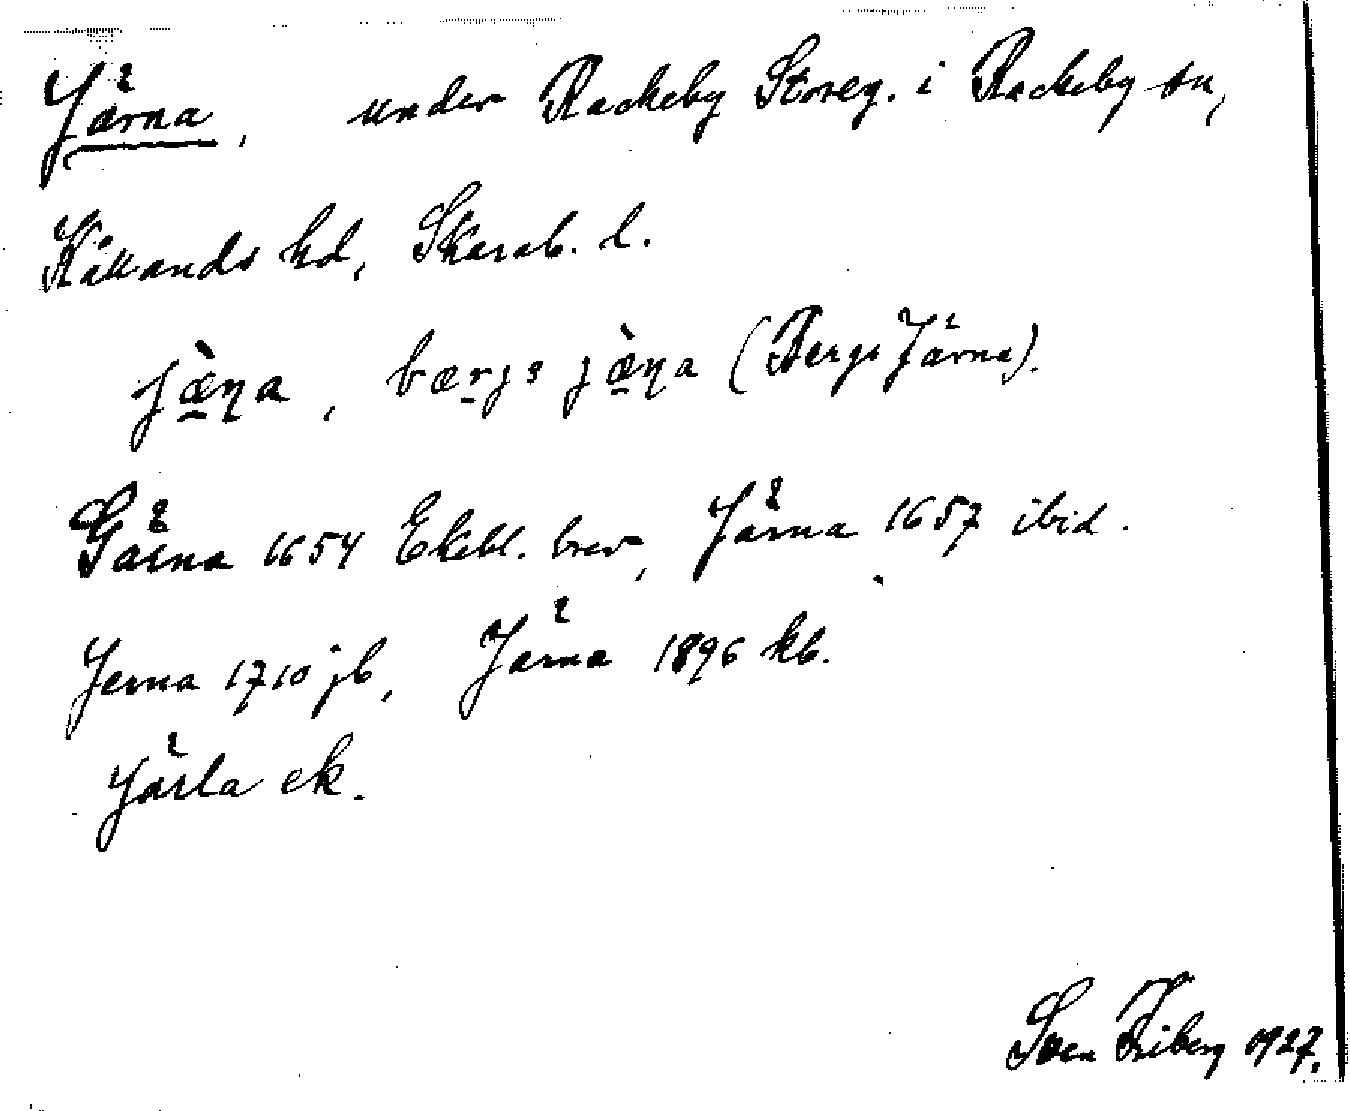 Järna, under Rackeby Storeg. i Rackeby sn,
Kållands hd, Skarab. l.
jæ̀ɳa, bærjs jæ̀ɳa (Bergs Järna).
Gärna 1654 Ekebl. brev, Järna 1657 ibid.
Jerna 1710 jb, Järna 1896 kb.
Järla ek.
Sven Friberg 1927.